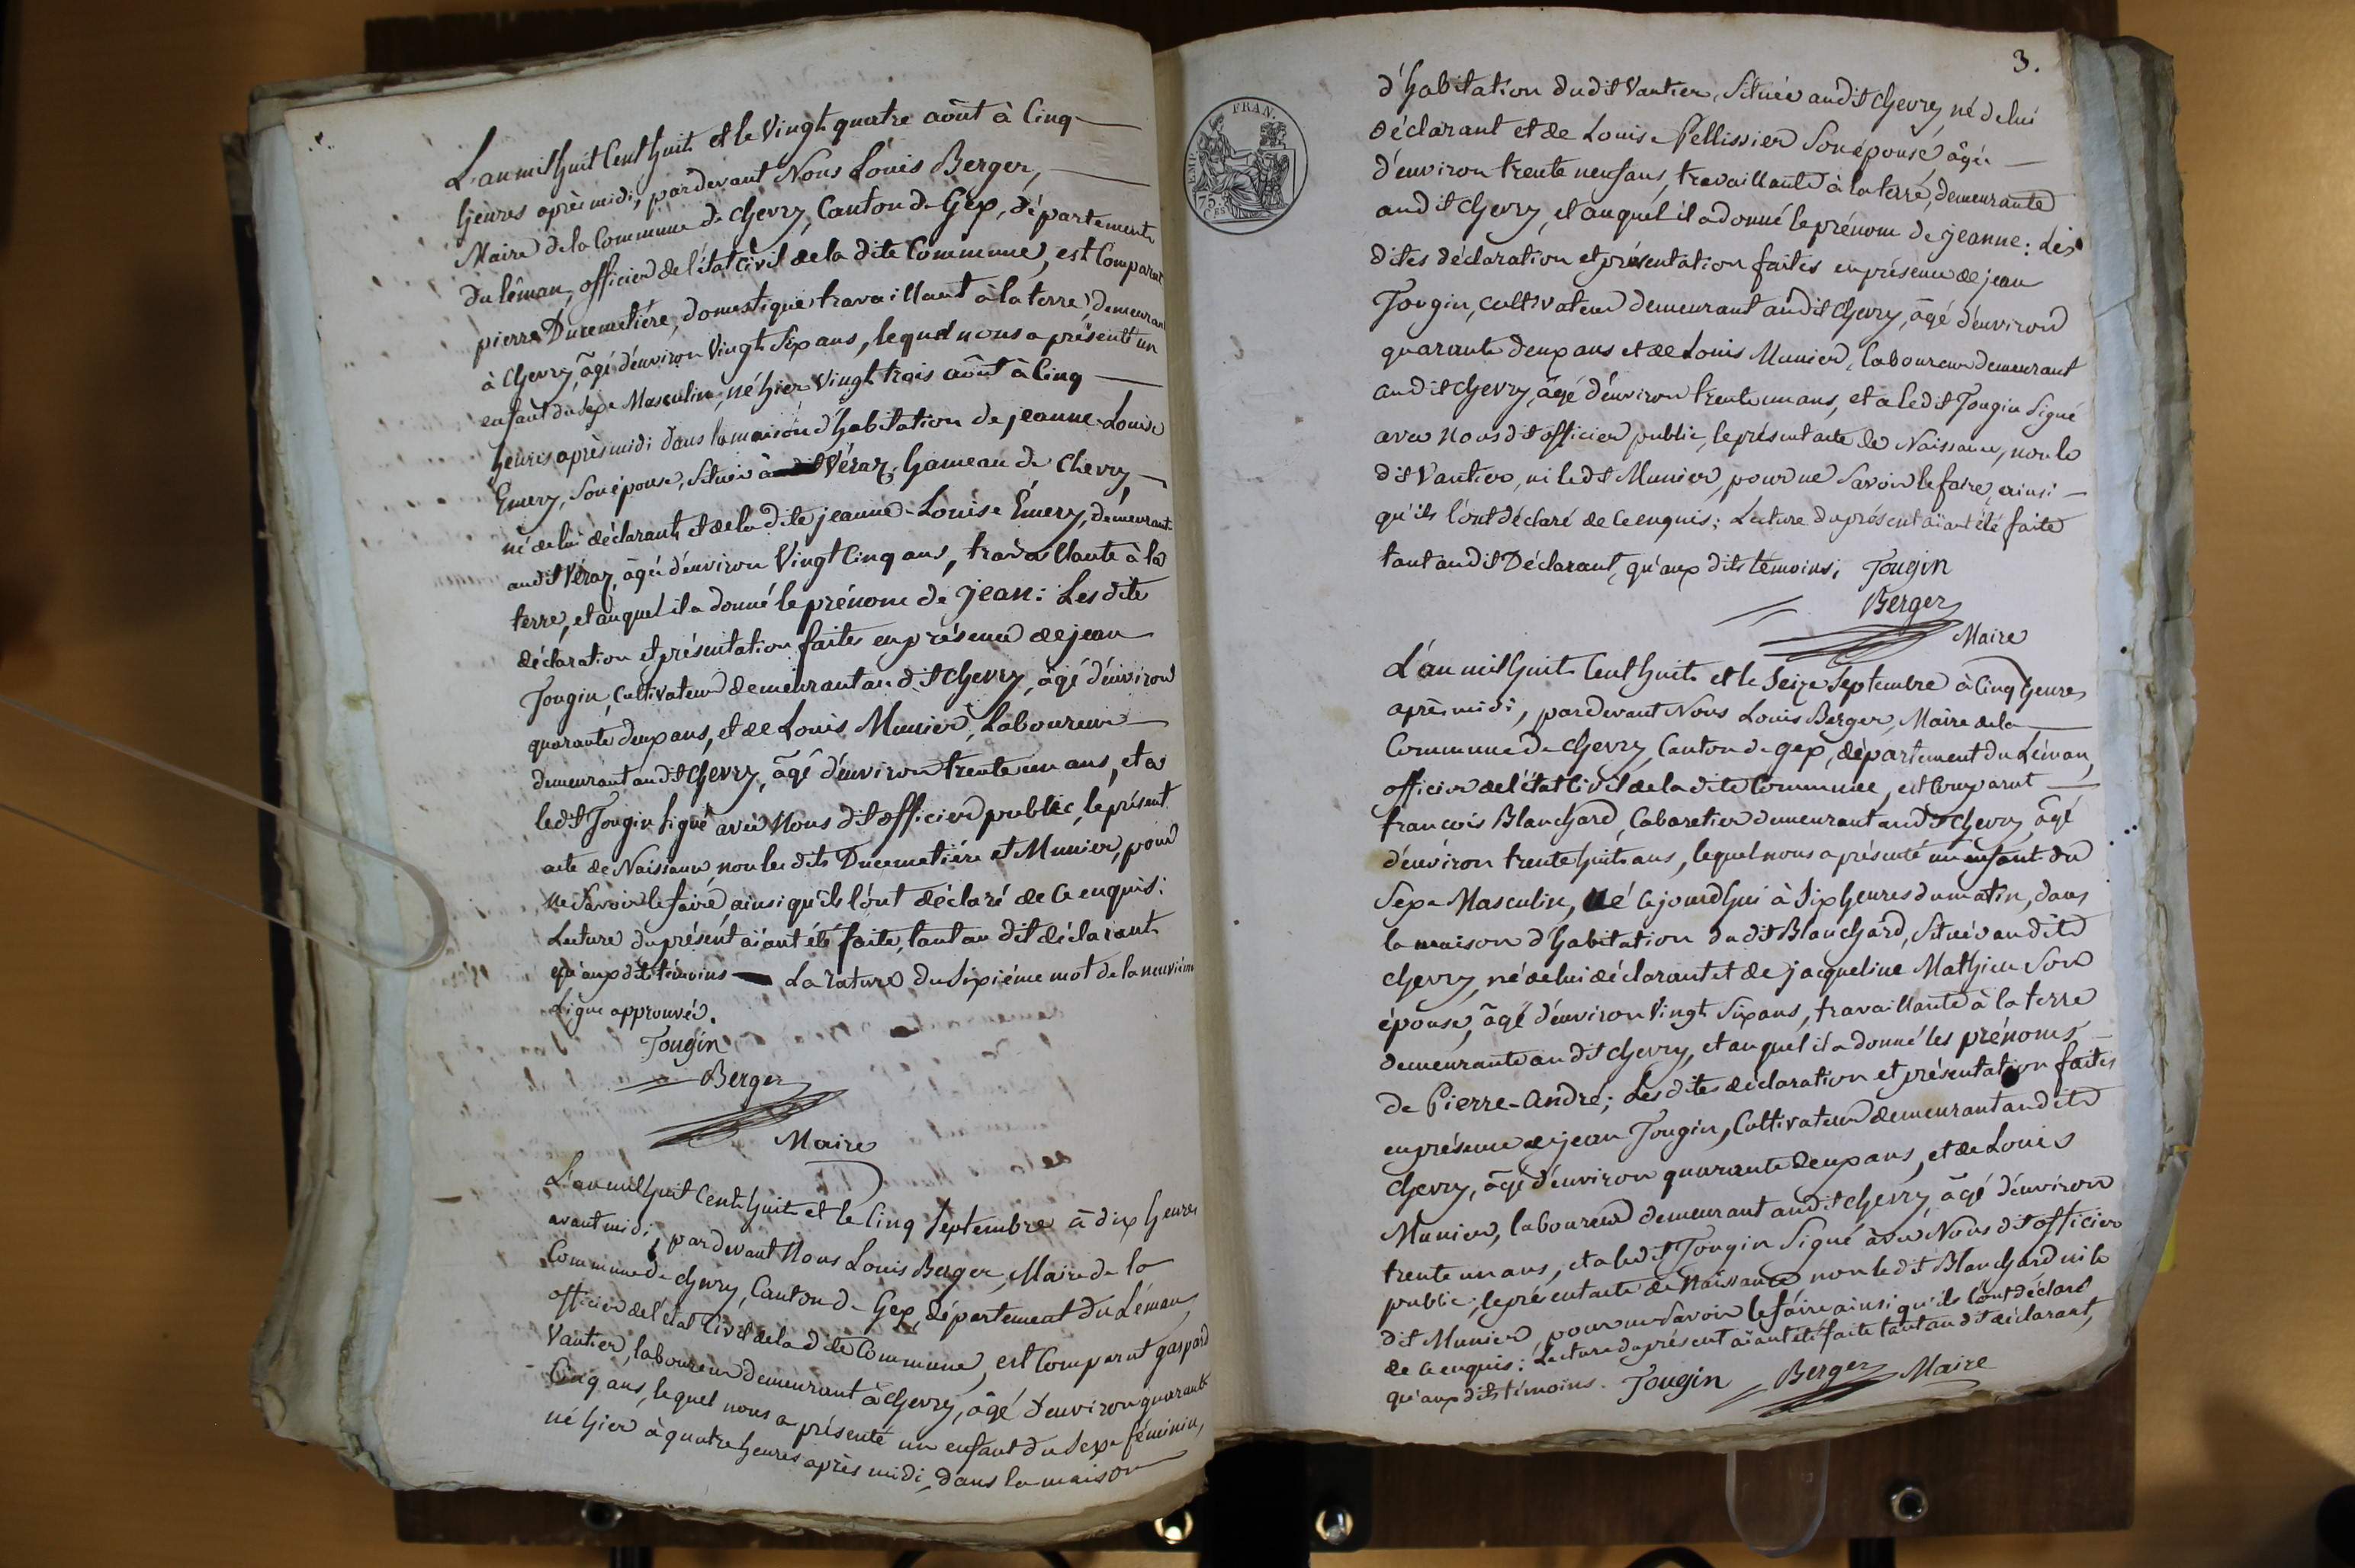 L'an mil huit Cent huit et le Vingt quatre août à Cinq
heures après midi, pardevant Nous Louis Berger,
Maire de la Commune de Chevry, Canton de Gex, département
du léman, officier de l'état Civil de la dite Commune, est Comparut
pierre Ducemetiére, domestique travaillant à la terre, demeurant
à Chevry, âgé d'environ Vingt Six ans, lequel nous a présenté un
enfant du Sexe Masculin, né hier Vingt trois août à Cinq
heures après midi dans la maison d'habitation de jeanne-Louise
Emery, Son épouse, Située à Véraz, hameau de Chevry,
né de lui déclarant et de la dite jeanne-Louise Émery, demeurant
audit Véraz, âgée d'environ Vingt Cinq ans, travaillante à la
terre, et auquel il a donné le prénom de jean: Les dite
déclaration et présentation faites en présence de jean
Tougin, Cultivateur demeurant audit Chevry, âgé d'environ
quarante deux ans, et de Louis Munier, Laboureur
demeurant audit Chevry, âgé d'environ trente un ans, et a
ledit Tougin Signé avec Nous dit officier public, le présent
acte de Naissance, non les dits Ducemetiére et Munier, pour
ne Savoir le faire, ainsi qu'ils l'ont déclaré de ce enquis:
Lecture du présent aïant été faite, tant au dit déclarant
qu'aux dits témoins La rature du Sixiéme mot de la neuviéme
Ligne approuvée.
Tougin
Berger
Maire
L'an mil huit Cent huit et le Cinq Septembre à dix heures
avant midi, pardevant Nous Louis Berger, Maire de la
Commune de Chevry, Canton de Gex, département du Léman,
officier de l'état Civil de la dite Commune, est Comparut gaspard
Vantier, laboureur demeurant à Chevry, âgé d'environ quarante
Cinq ans, lequel nous a présenté un enfant du Sexe féminin,
né hier à quatre heures après midi, dans la maison
3.
FRAN.
EMP.
75.
CES
d'habitation dudit Vantier, Située audit Chevry, né de lui
déclarant et de Louise Pellissier Son épouse, âgée
d'environ trente neuf ans, travaillante à la terre, demeurante
audit Chevry, et auquel il a donné le prénom de jeanne: Les
dites déclaration et présentation faites en présence de jean
Tougin, cultivateur demeurant audit Chevry, âgé d'environ
quarante deux ans et de Louis Munier, laboureur demeurant
audit Chevry, âgé d'environ trente un ans, et a ledit Tougin Signé
avec Nous dit officier public, le présent acte de Naissance, non le
dit Vantier, ni ledit Munier, pour ne Savoir le faire, ainsi
qu'ils l'ont déclaré de Ce enquis; Lecture du présent aïant été faite
tant audit Déclarant, qu'aux dits témoins; Tougin
Berger
Maire
L'an mil huit Cent huit et le Seize Septembre à Cinq heures
après midi, pardevant Nous Louis Berger, Maire de la
Commune de Chevry, Canton de gex, département du Léman,
officier de l'état Civil de la dite Commune, est Comparut
francois Blanchard, Cabaretier demeurant audit Chevry, âgé
d'environ trente huit ans, lequel nous a présenté un enfant du
Sexe Masculin, Né Cejourd'hui à Six heures du matin, dans
la maison d'habitation dudit Blanchard, Située audit
Chevry, né de lui déclarant et de jacqueline Mathieu Son
épouse, âgé d'environ Vingt Six ans, travaillante à la terre
demeurante audit Chevry, et auquel il a donné les prénoms
de Pierre-André; Les dites déclaration et présentation faites
en présence de jean Tougin, Cultivateur demeurant audit
Chevry, âgé d'environ quarante deux ans, et de Louis
Munier, laboureur demeurant audit Chevry, âgé d'environ
trente un ans, et a ledit Tougin Signé avec Nous dit officier
public, le présent acte de Naissance non ledit Blanchard ni le
dit Munier, pour ne Savoir le faire ainsi qu'ils l'ont déclaré
de Ce enquis: Lecture du présent aïant été faite tant audit déclarant,
qu'aux dits témoins. Tougin Berger Maire